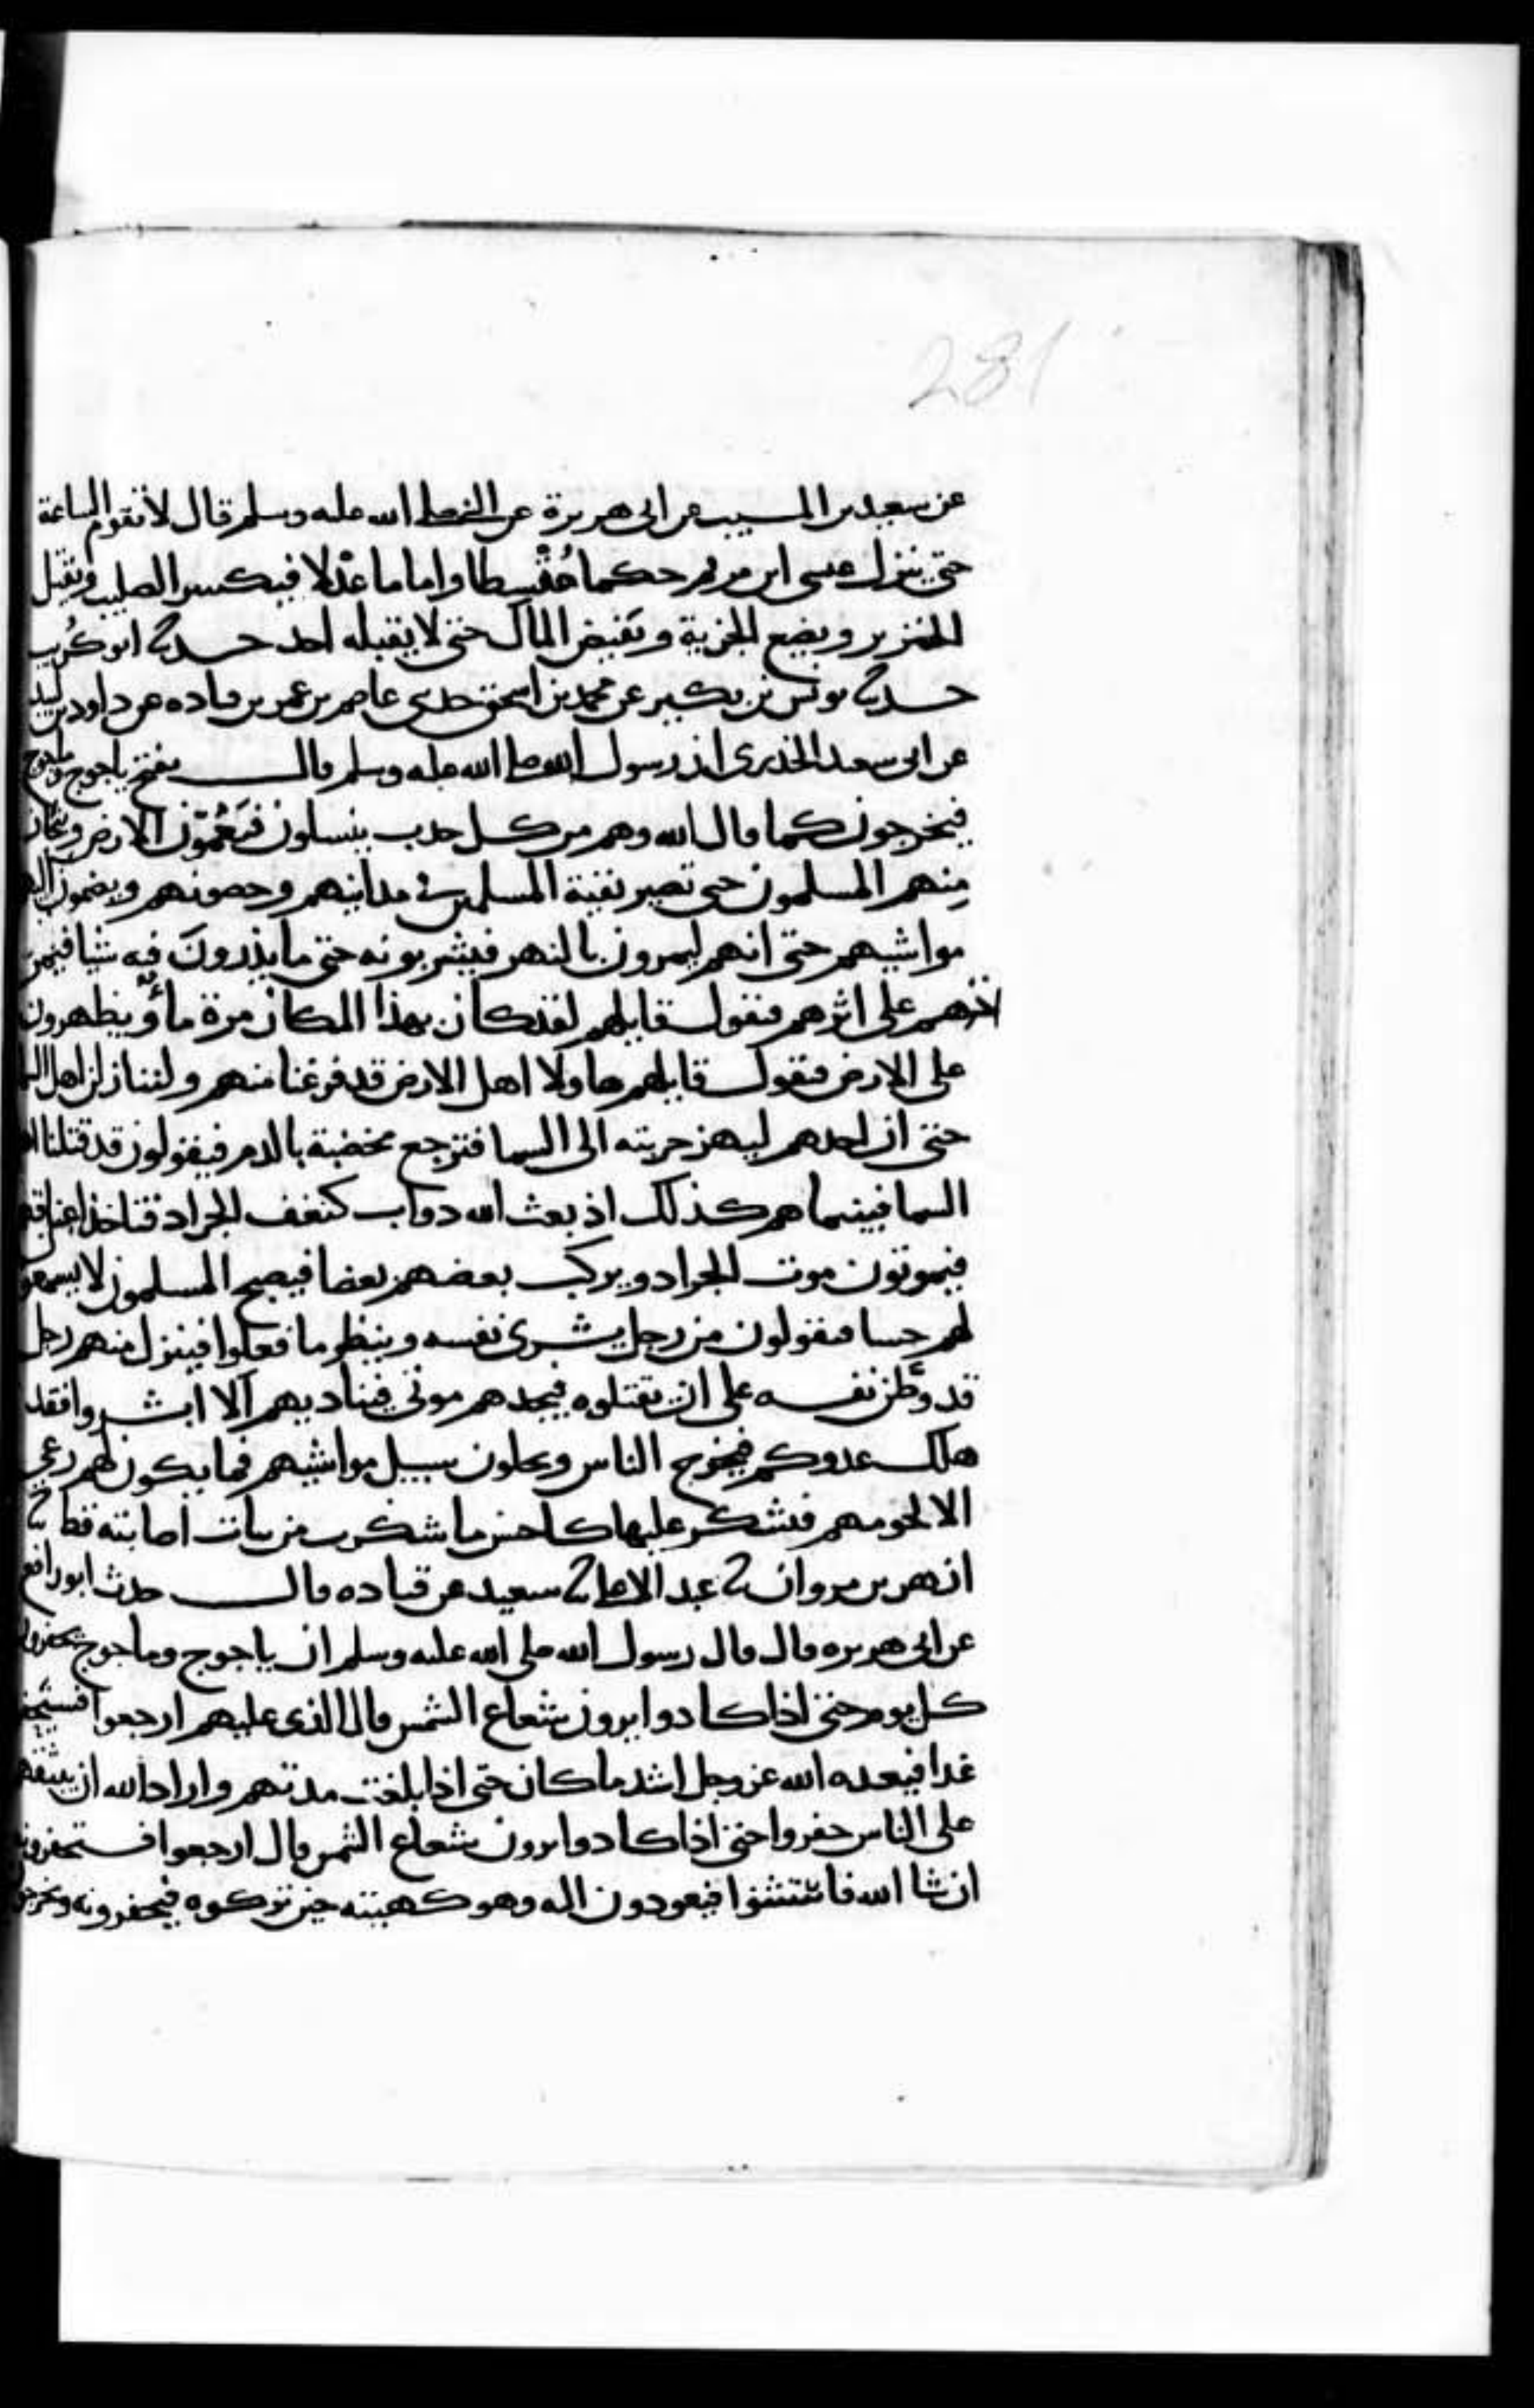 281
عن سعيد بن المسيب عن ابى هريرة عن النبى صلى الله عليه وسلم قال لا تقوم الساعة
حتى ينزل عيسى ابن مريم حكما مُقْسِطا واماما عدْلا فيكسر الصليب ويقتل
الخنزير ويضع الجزية ويَفيض المال حتى لا يقبله احد حدثنا ابو كُريب
حدثنا يونس بن بكير عن محمد بن اسحق حدثنى عاصم بن عمر بن قتاده عن داود بن لبيد
عن ابى سعيد الخدرى ان رسول الله صلى الله عليه وسلم قال تفتح ياجوج وماجوج
فيخرجون كما قال الله وهم من كل حدب ينسلون فيَعُمّون الارض وينحاز
مِنهم المسلمون حتى تصير بقية المسلمين فى مداينهم وحصونهم ويضمون اليهم
مواشيهم حتى انهم ليمرون بالنهر فيشربونه حتى ما يذرونَ فيه شيا فيمر
اخرهم على اثرهم فيقول قايلهم لقد كان بهذا المكان مرة ماءٌ ويظهرون
على الارض فيقول قايلهم هاولا اهل الارض قد فرغنا منهم ولننازلن اهل السما
حتى ان احدهم ليهز حربته الى السما فترجع مخضبة بالدم فيقولون قد قتلنا اهل
السما فبينما هم كذلك اذ بعث الله دواب كنغف الجراد فتاخذ اعناقهم
فيموتون موت الجراد ويركب بعضهم بعضا فيصبح المسلمون لا يسمعون
لهم حسا فيقولون من رجل يشرى نفسه وينظر ما فعلوا فينزل منهم رجل
قد وطّن نفسه على ان يقتلوه فيجدهم موتى فيناديهم الا ابشروا فقد
هلك عدوكم فيخرج الناس ويخلون سبيل مواشيهم فما يكون لهم رعى
الا لحومهم فتشكر عليها كاحسن ما شكرت من نبات اصابته قط ثنا
ازهر بن مروان ثنا عبد الاعلى ثنا سعيد عن قتاده قال حدث ابو رافع
عن ابى هريره قال قال رسول الله صلى الله عليه وسلم ان ياجوج وماجوج يحفرون
كل يوم حتى اذا كادوا يرون شعاع الشمس قال الذى عليهم ارجعوا فسنحفر
غدا فيعيده الله عز وجل اشد ما كان حتى اذا بلغت مدتهم واراد الله ان يبعثهم
على الناس حفروا حتى اذا كادوا يرون شعاع الشمس قال ارجعوا فستحفرونه
ان شا الله فاستثنوا فيعودون اليه وهو كهيئته حين تركوه فيحفرونه ويخرجون